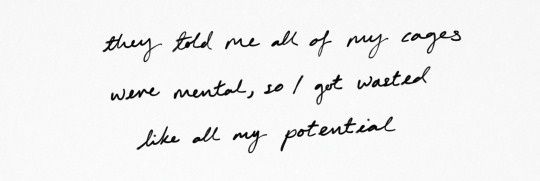 they told me all of my cages
were mental, so I got wasted
like all my potential